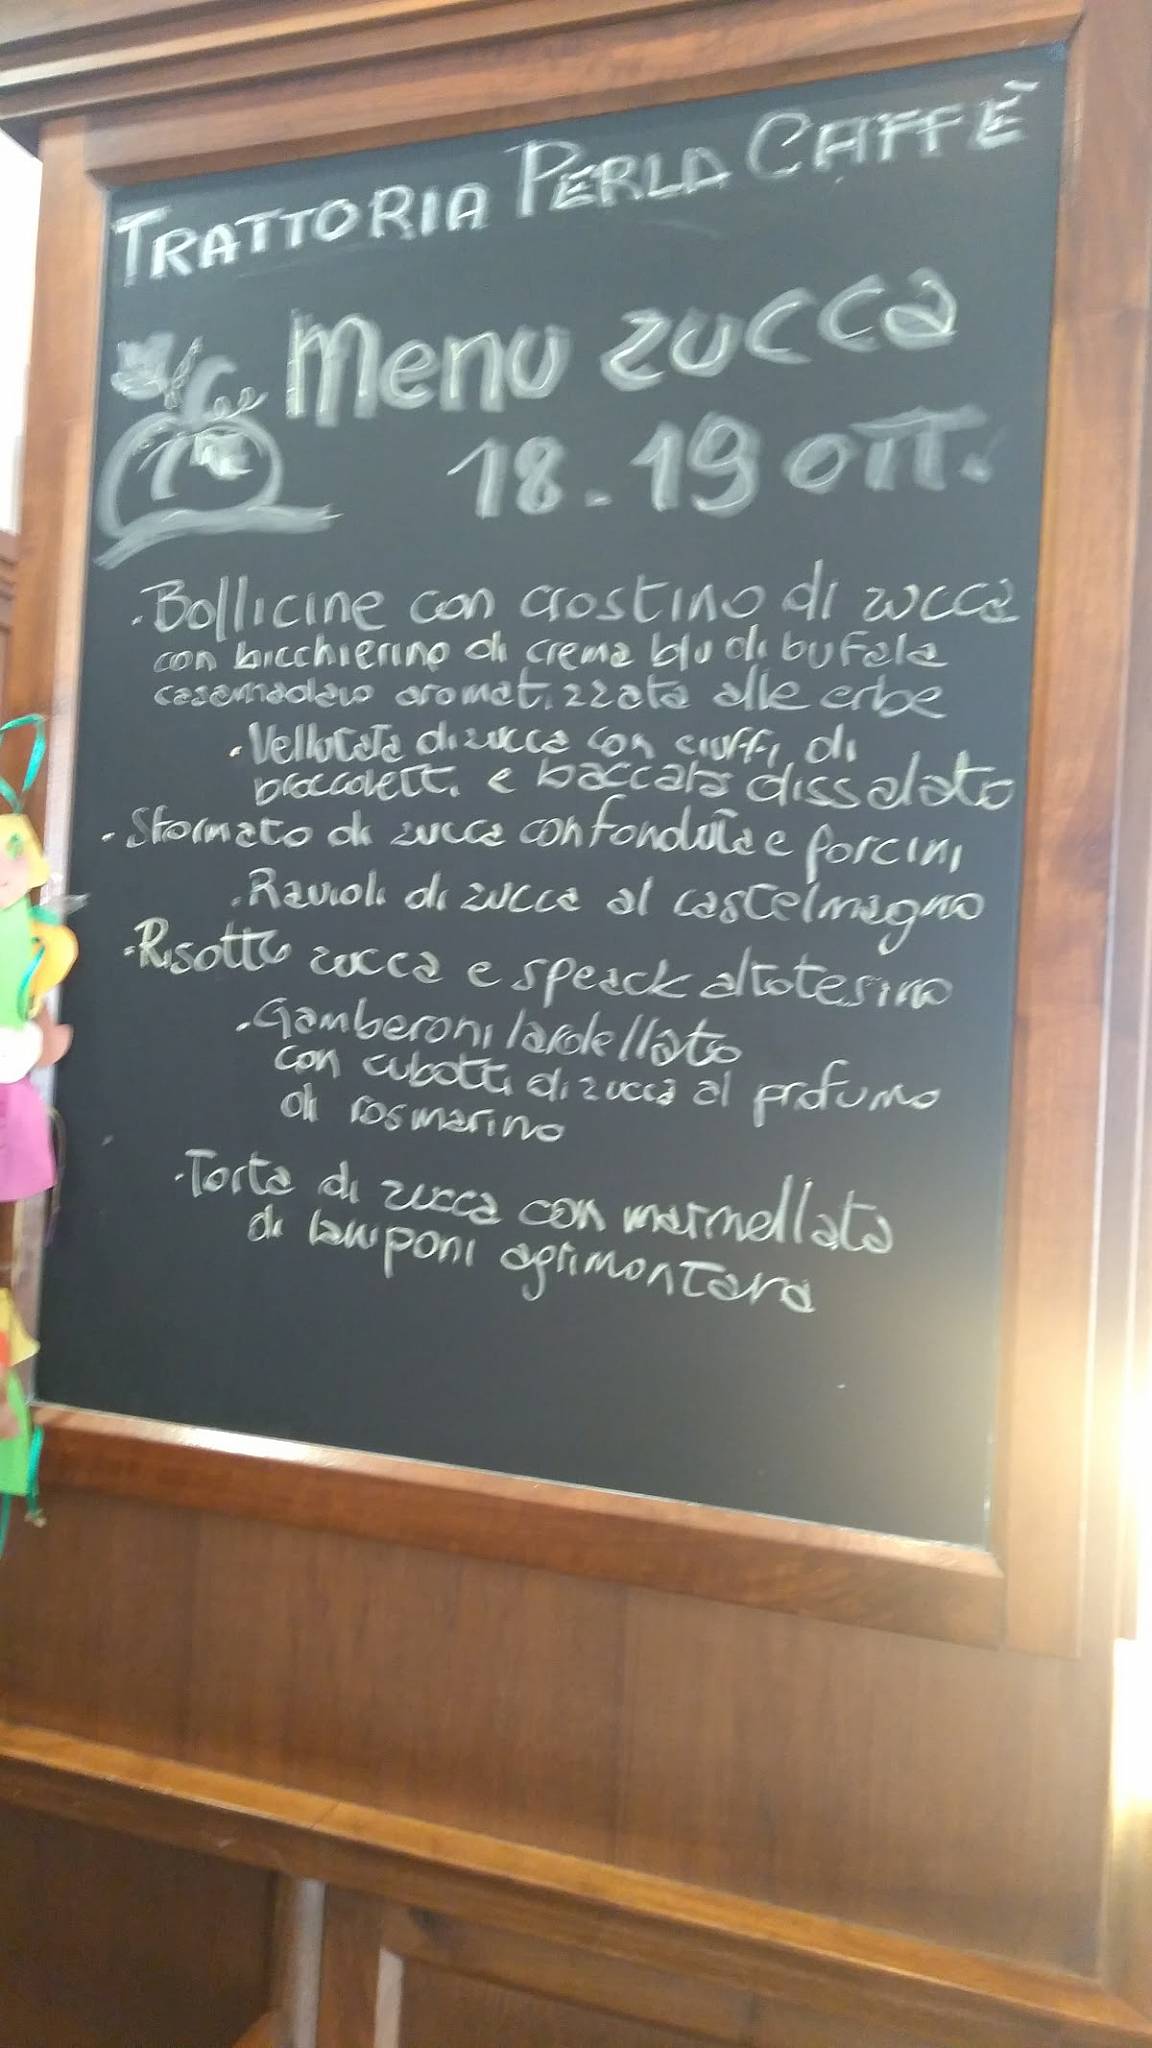 TRATTORIA PERLA CAFFÈ
Menu zucca
18 - 19 OTT.
. Bollicine con crostino di zucca
con bicchierino di crema blu di bufala
casemadaio aromatizzata alle erbe
. Vellutata di zucca con ciuffi di
broccoletti e baccala dissalato
. Sformato di zucca con fonduta e porcini
. Ravioli di zucca al castelmagno
. Risotto zucca e speack altotesino
. Gamberoni lardellato
con cubotti di zucca al profumo
di rosmarino
. Torta di zucca con marmellata
di lamponi agrimontana